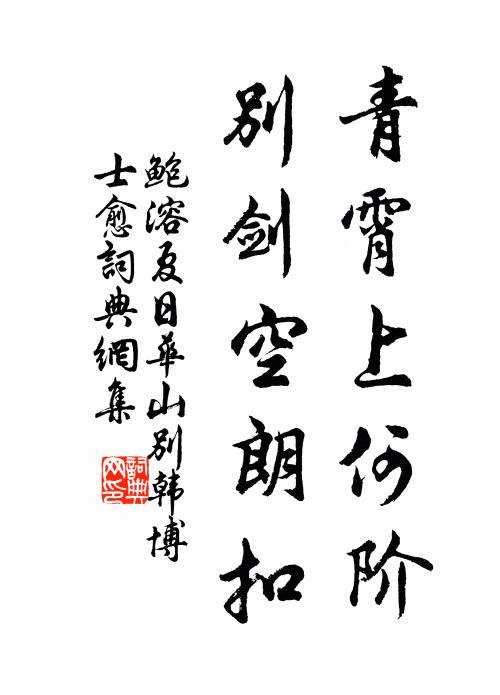 青霄上何阶
别剑空朗扣
鲍溶夏日华山别韩博
士愈词典网集
词典
网印